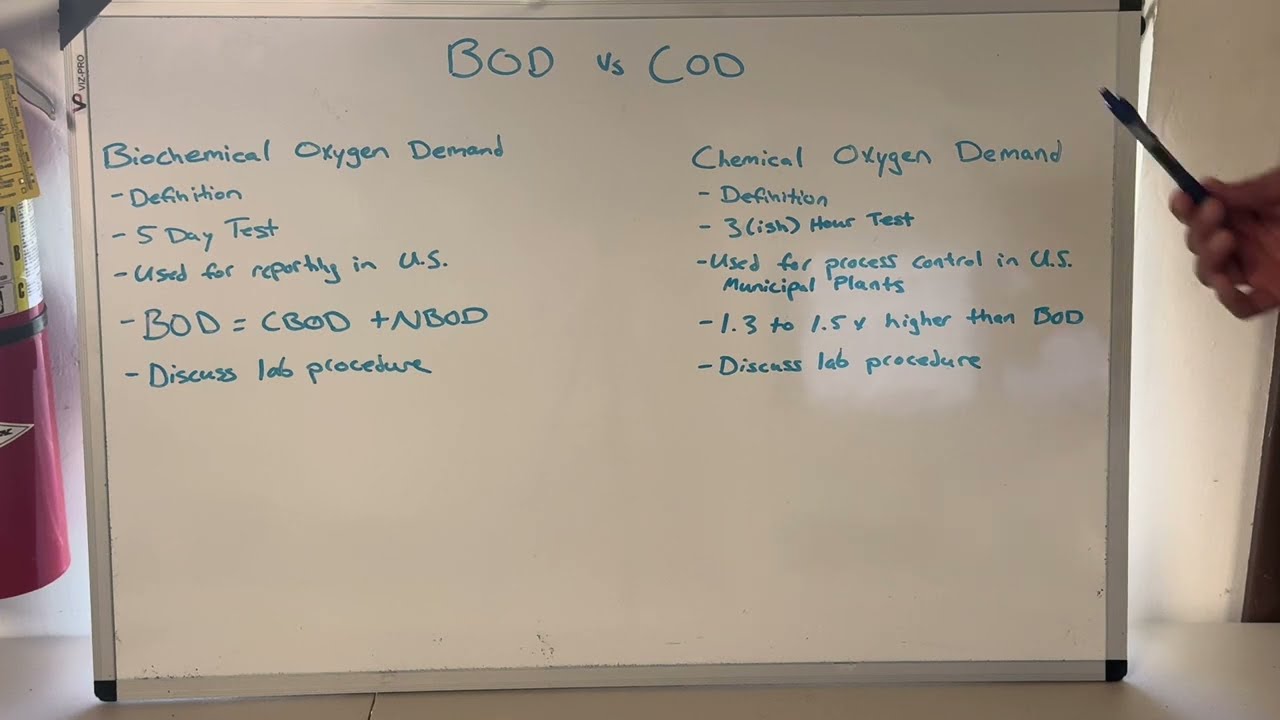 BOD vs COD
VIZ-PRO
Biochemical Oxygen Demand
- Definition
- 5 Day Test
- Used for reporting in U.S.
- BOD = CBOD + NBOD
- Discuss lab procedure
Chemical Oxygen Demand
- Definition
- 3(ish) Hour Test
- Used for process control in U.S.
Municipal Plants
- 1.3 to 1.5x higher than BOD
- Discuss lab procedure
A
B
C